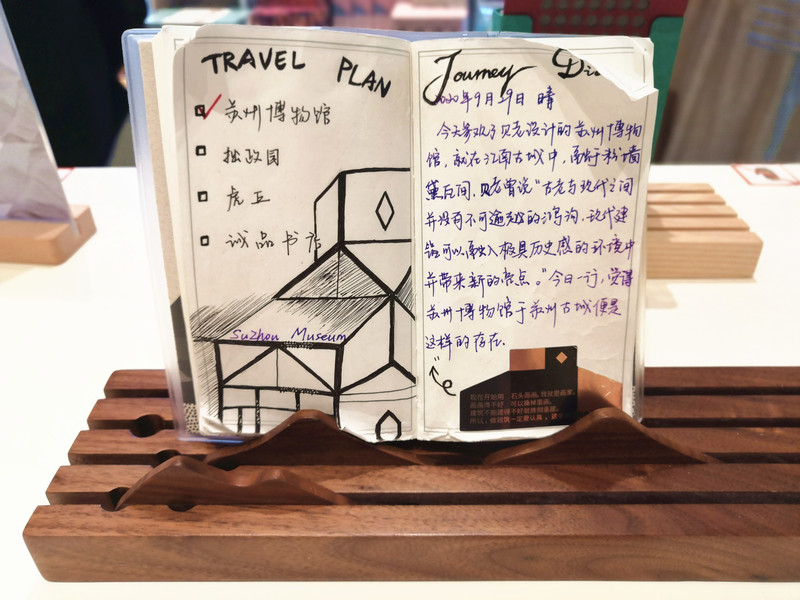 TRAVEL PLAN
苏州博物馆
拙政园
虎丘
诚品书店
Suzhou Museum
Journey
2020年9月29日 晴
今天参观了贝老设计的苏州博物
馆，就在江南古城中，融于粉墙
黛瓦间，贝老曾说"古老与现代之间
并没有不可逾越的鸿沟，现代建
筑可以融入极具历史感的环境中
并带来新的亮点。"今日一行，觉得
苏州博物馆于苏州古城便是
这样的存在.